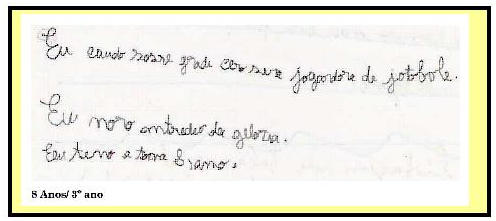 Eu caudo sosre grade ceo sere jogandore de jotobole.
Eu noro antredor da geloria.
Eu teno e tona 8 ano.
8 Anos/ 3º ano